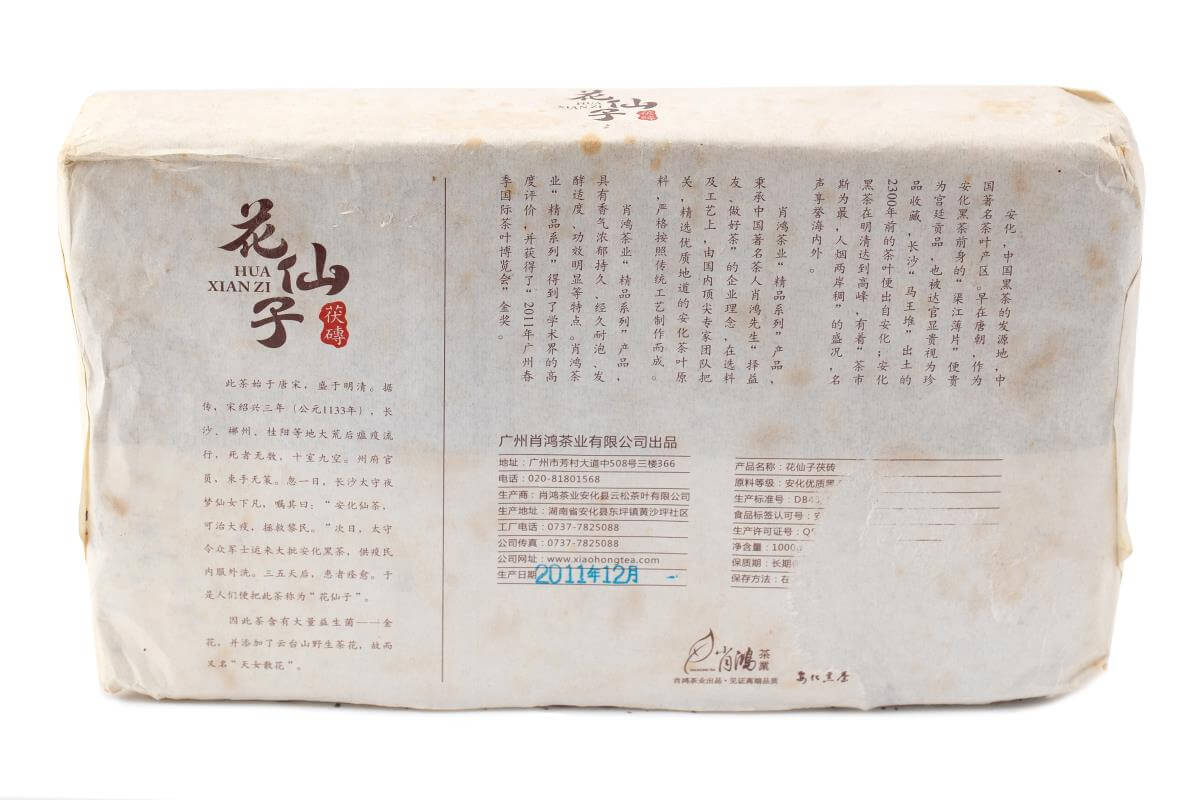 花仙子
HUA
XIAN ZI
茯磚
花仙子
HUA
XIAN ZI
茯磚
此茶始于唐宋，盛于明清。据
传，宋绍兴三年（公元1133年），长
沙、郴州、桂阳等地大荒后瘟疫流
行，死者无数，十室九空。州府官
员，束手无策。忽一日，长沙太守夜
梦仙女下凡，嘱其曰：“安化仙茶，
可治大疫，拯救黎民。”次日，太守
令众军士运来大批安化黑茶，供疫民
内服外洗。三五天后，患者痊愈。于
是人们便把此茶称为“花仙子”。
因此茶含有大量益生菌——金
花，并添加了云台山野生茶花，故而
又名“天女散花”。
安化，中国黑茶的发源地，中
国著名茶叶产区。早在唐朝，作为
安化黑茶前身的“渠江薄片”便贵
为宫廷贡品，也被达官显贵视为珍
品收藏，长沙“马王堆”出土的
2300年前的茶叶便出自安化；安化
黑茶在明清达到高峰，有着“茶市
斯为最，人烟两岸稠”的盛况，名
声享誉海内外。
肖鸿茶业“精品系列”产品，
秉承中国著名茶人肖鸿先生“择益
友、做好茶”的企业理念，在选料
及工艺上，由国内顶尖专家团队把
关，精选优质地道的安化茶叶原
料，严格按照传统工艺制作而成。
肖鸿茶业“精品系列”产品，
具有香气浓郁持久、经久耐泡、发
酵适度、功效明显等特点。肖鸿茶
业“精品系列”得到了学术界的高
度评价，并获得了“2011年广州春
季国际茶叶博览会”金奖。
广州肖鸿茶业有限公司出品
地址：广州市芳村大道中508号三楼366
电话：020-81801568
生产商：肖鸿茶业安化县云松茶叶有限公司
生产地址：湖南省安化县东坪镇黄沙坪社区
工厂电话：0737-7825088
公司传真：0737-7825088
公司网址：www.xiaohongtea.com
生产日期 2011年12月
产品名称：花仙子茯砖
原料等级：安化优质黑
生产标准号：DB4
食品标签认可号：安
生产许可证号：Q
净含量：1000g
保质期：长期
保存方法：在
肖鸿茶業
肖鸿茶业出品·见证高端品质
安化黑茶